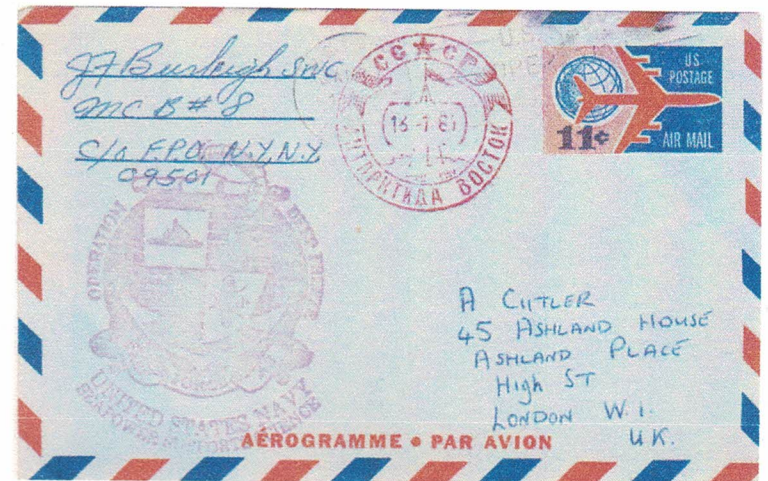 JF Burleigh SWC
MCB # 8
C/o F.P.O. N.Y., N.Y.
09501
СС★СР
16-1 8
АНТАРКТИДА ВОСТОК
U.S.
US
POSTAGE
11¢
AIR MAIL
OPERATION DEEP FREEZE
TASK FORCE
UNITED STATES NAVY
SEAPOWER SUPPORTS SCIENCE
A CUTLER
45 ASHLAND HOUSE
ASHLAND PLACE
HIGH ST
LONDON W.1.
U.K.
AÉROGRAMME • PAR AVION